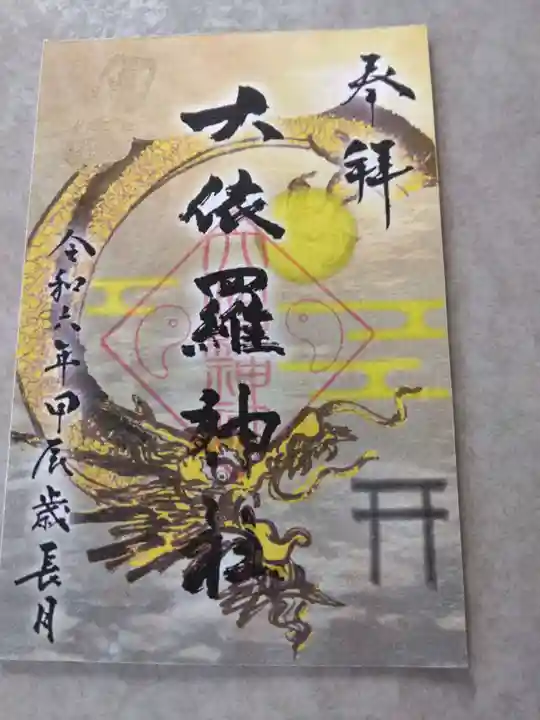 奉拝
大依羅神社
令和六年甲辰歳長月